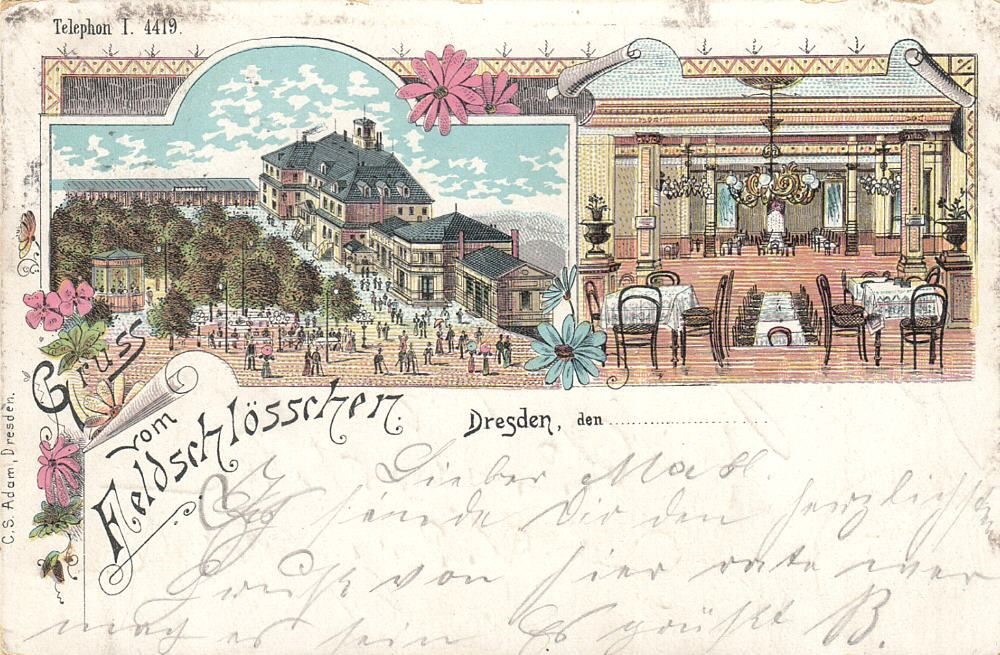 Telephon I. 4419.
Gruss
vom
Feldschlösschen.
Dresden, den
C.S. Adam, Dresden.
Lieber
Ich sende Dir den herzlichsten
Gruß von hier rate wer
mag es sein Es grüßt B.